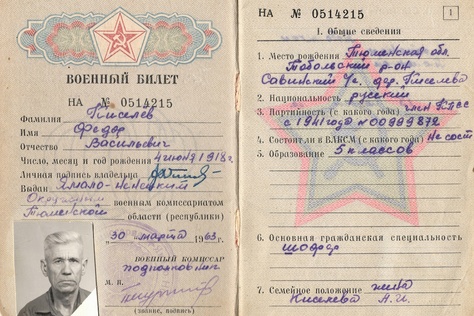 ВОЕННЫЙ БИЛЕТ
НА № 0514215
Фамилия Киселев
Имя Федор
Отчество Васильевич
Число, месяц и год рождения 4 июня 1918 г.
Личная подпись владельца
Выдан Ямало-Ненецким
Окружным военным комиссариатом
Тюменской области (республики)
„30“ марта 1963 г.
ВОЕННЫЙ КОМИССАР
подполковник
М. П.
(звание, подпись)
НА № 0514215
1
I. Общие сведения
1. Место рождения Тюменская обл.
Тобольский р-он
Савинский с/с. дер. Киселева
2. Национальность русский
3. Партийность (с какого года) член КПСС
с 1941 года № 00999872
4. Состоял ли в ВЛКСМ (с какого года) Не сост
5. Образование 5 классов
6. Основная гражданская специальность
шофер
7. Семейное положение жена
Киселева А. И.